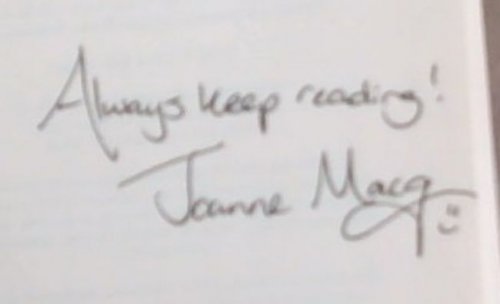 Always keep reading!
Joanne Macq :)